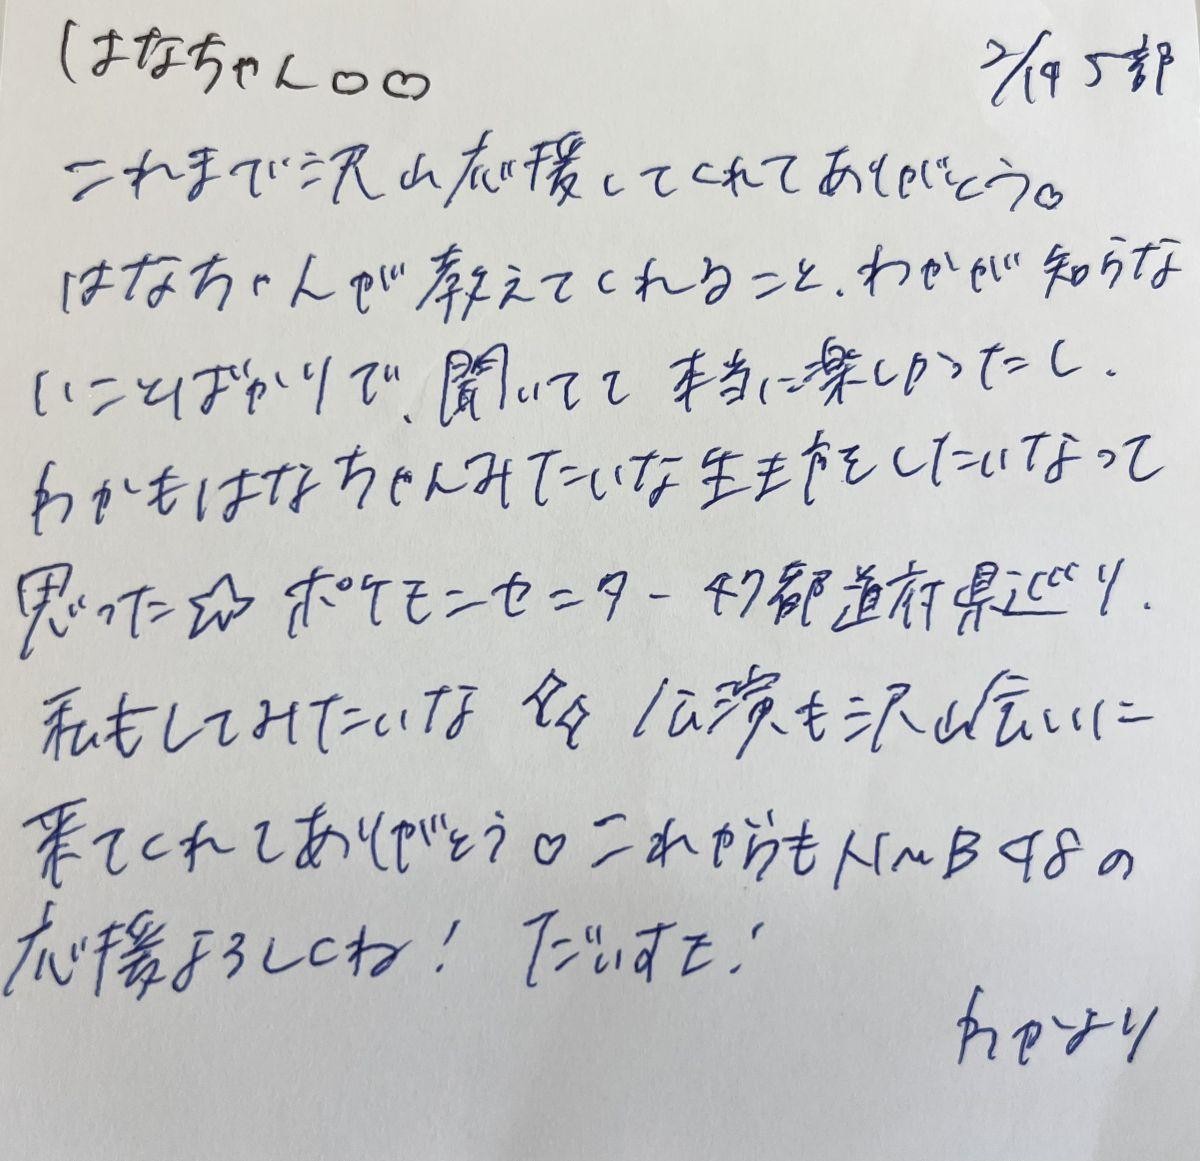 はなちゃん♡♡ 2/14 5部
これまで沢山応援してくれてありがとう♡
はなちゃんが教えてくれること、わかが知らな
いことばかりで、聞いてて本当に楽しかったし、
わかもはなちゃんみたいな生き方をしたいなって
思った☆ ポケモンセンター47都道府県巡り、
私もしてみたいな 公演も沢山会いに
来てくれてありがとう♡これからもNMB48の
応援よろしくね! だいすき!
わかより